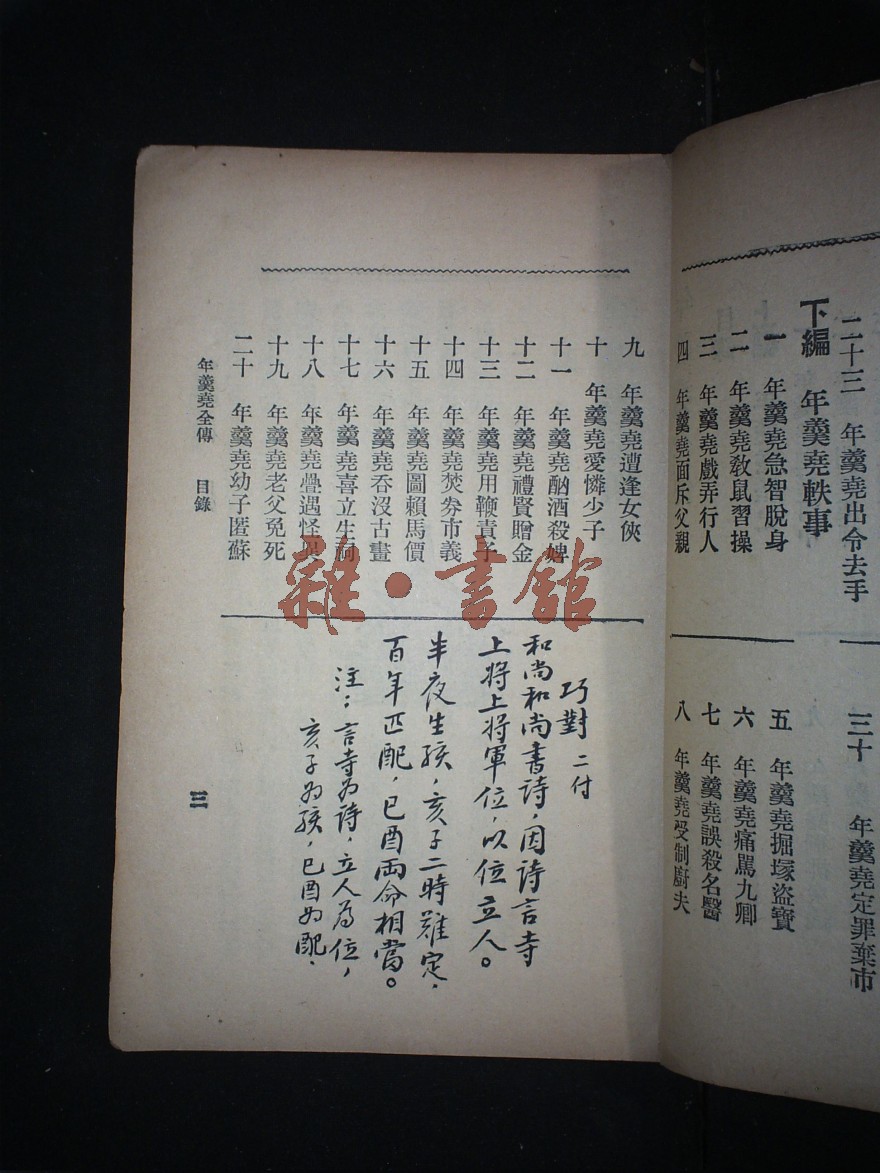 二十三 年羹堯出令去手
三十 年羹堯定罪棄市
下編 年羹堯軼事
一 年羹堯急智脫身
二 年羹堯敎鼠習操
三 年羹堯戲弄行人
四 年羹堯面斥父親
五 年羹堯掘塚盜寶
六 年羹堯痛駡九卿
七 年羹堯誤殺名醫
八 年羹堯受制廚夫
九 年羹堯遭逢女俠
十 年羹堯愛憐少子
十一 年羹堯酗酒殺婢
十二 年羹堯禮賢贈金
十三 年羹堯用鞭責子
十四 年羹堯焚券市義
十五 年羹堯圖賴馬價
十六 年羹堯吞沒古畫
十七 年羹堯喜立生祠
十八 年羹堯疊遇怪異
十九 年羹堯老父免死
二十 年羹堯幼子匿蘇
年羹堯全傳 目錄
三
巧對 二付
和尚和尚書詩，因詩言寺
上將上將軍位，以位立人。
半夜生孩，亥子二時難定，
百年匹配，已酉兩命相當。
注：言寺为詩，立人為位，
亥子为孩，已酉为配，
雜·書館